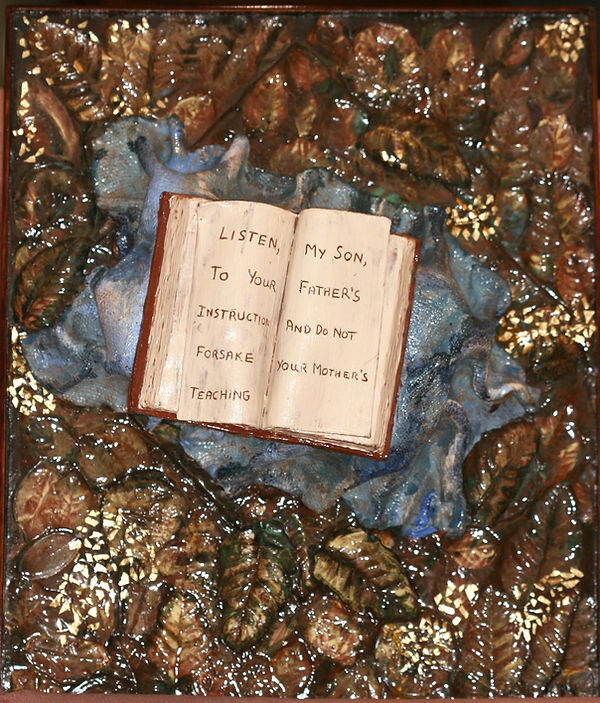 LISTEN, MY SON,
TO YOUR FATHER'S
INSTRUCTION AND DO NOT
FORSAKE YOUR MOTHER'S
TEACHING